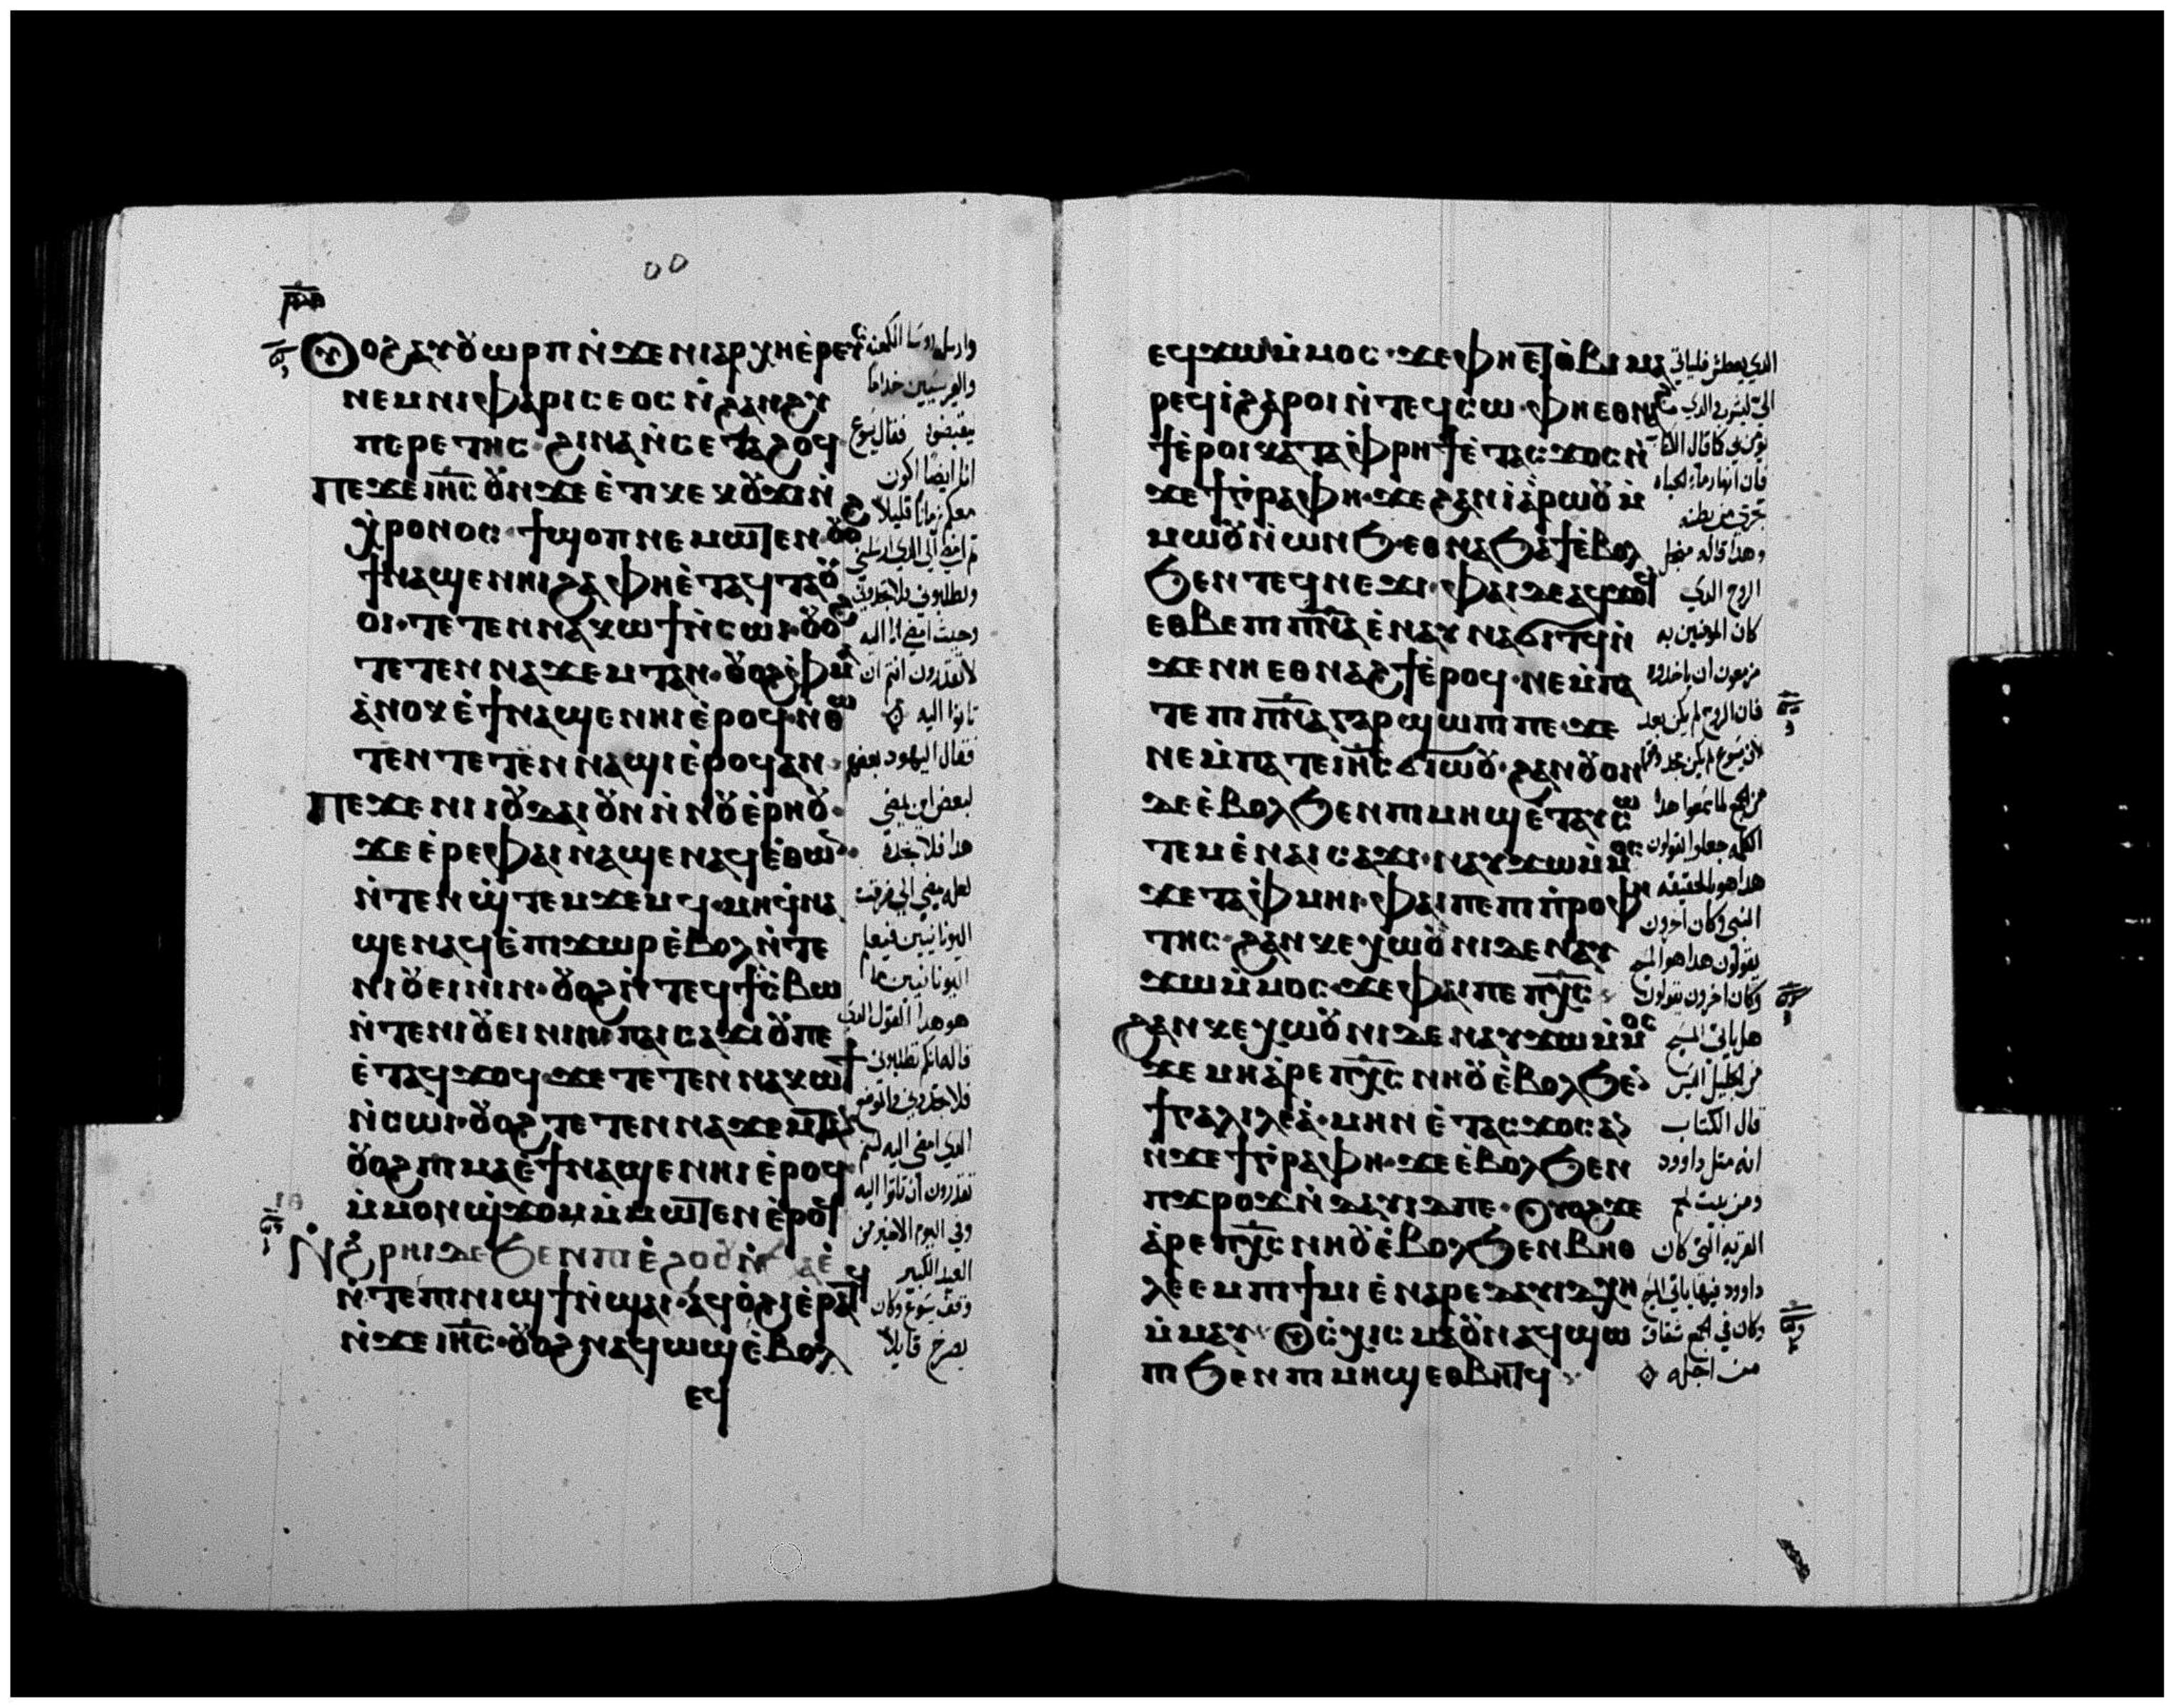 ⲣ̅ⲙ̅ⲑ̅
Ⲟⲩⲟϩⲁⲩⲟⲩⲱⲣⲡⲛ̀ϫⲉⲛⲓⲁⲣⲭⲏⲉ̀ⲣⲉⲩⲥ
ⲛⲉⲙⲛⲓⲫⲁⲣⲓⲥⲉⲟⲥⲛ̀ϩⲁⲛϩⲩ
ⲡⲉⲣⲉⲧⲏⲥ·ϩⲓⲛⲁⲛ̀ⲥⲉⲧⲁϩⲟϥ
ⲡⲉϫⲉⲓⲏ̅ⲥ̅ⲟⲩⲛϫⲉⲉ̀ⲧⲓⲕⲉⲕⲟⲩϫⲓⲛ̀
ⲭ̀ⲣⲟⲛⲟⲥ·ϯϣⲟⲡⲛⲉⲙⲱⲧⲉⲛ·ⲟⲩⲟϩ
ϯⲛⲁϣⲉⲛⲏⲓϩⲁⲫⲏⲉ̀ⲧⲁϥⲧⲁⲟⲩ
ⲟⲓ·ⲧⲉⲧⲉⲛⲛⲁⲕⲱϯⲛ̀ⲥⲱⲓ·ⲟⲩⲟϩ
ⲧⲉⲧⲉⲛⲛⲁϫⲉⲙⲧⲁⲛ·ⲟⲩⲟϩⲉ̀ⲫⲙⲁ
ⲁ̀ⲛⲟⲕⲉ̀ϯⲛⲁϣⲉⲛⲏⲓⲉ̀ⲣⲟϥ·ⲛ̀ⲑⲱ
ⲧⲉⲛⲧⲉⲧⲉⲛⲛⲁϣⲓⲉ̀ⲣⲟϥⲁⲛ·
ⲡⲉϫⲉⲛⲓⲓⲟⲩⲇⲁⲓⲟⲩⲛⲛ̀ⲛⲟⲩⲉ̀ⲣⲏⲟⲩ·
ϫⲉⲉ̀ⲣⲉⲫⲁⲓⲛⲁϣⲉⲛⲁϥⲉ̀ⲑⲱⲛ·
ⲛ̀ⲧⲉⲛϣ̀ⲧⲉⲙϫⲉⲙϥ·ⲙⲏϥ̀ⲛⲁ
ϣⲉⲛⲁϥⲉ̀ⲡⲓϫⲱⲣⲉ̀ⲃⲟⲗⲛ̀ⲧⲉ
ⲛⲓⲟⲩⲉⲓⲛⲓⲛ·ⲟⲩⲟϩⲛ̀ⲧⲉϥϯⲥ̀ⲃⲱ
ⲛ̀ⲧⲉⲛⲓⲟⲩⲉⲓⲛⲓⲛⲡⲁⲓⲥⲁϫⲓⲟⲩⲡⲉ
ⲉ̀ⲧⲁϥϫⲟϥ·ϫⲉⲧⲉⲧⲉⲛⲛⲁⲕⲱϯ
ⲛ̀ⲥⲱⲓ·ⲟⲩⲟϩⲧⲉⲧⲉⲛⲛⲁϫⲉⲙⲧⲁⲛ
ⲟⲩⲟϩⲡⲓⲙⲁⲉ̀ϯⲛⲁϣⲉⲛⲏⲓⲉ̀ⲣⲟϥ·
ⲙ̀ⲙⲟⲛϣ̀ϫⲟⲙⲙ̀ⲙⲱⲧⲉⲛⲉ̀ⲣⲟϥ
ⲛ̀ϩ̀ⲣⲏⲓⲇⲉϧⲉⲛⲡⲓⲉ̀ϩⲟⲟⲩⲛ̀ϧⲁⲉ̀
ⲛ̀ⲧⲉⲡⲓⲛⲓϣϯⲛ̀ϣⲁⲓ·ⲁϥⲟ̀ϩⲓⲉ̀ⲣⲁⲧϥ
ⲛ̀ϫⲉⲓⲏ̅ⲥ̅·ⲟⲩⲟϩⲛⲁϥⲱϣⲉ̀ⲃⲟⲗ
ⲉϥ
وارسل روسا الكهنه
والفريسيين خداما
يقبضوه فقال يسوع
انا ايضا اكون
معكم زمانا قليلا
ثم امضي الي الذي ارسلني
وتطلبوني فلا تجدوني
وحيث امضي انا اليه
لا تقدرون انتم ان
تاتوا اليه
فقال اليهود بعضهم
لبعض اين يمضي
هذا فلا نجده
لعله يمضي الي فرقت
اليونانيين فيعلم
اليونانيين ما
هو هذا القول الذي
قاله انكم تطلبوني
فلا تجدوني والموضع
الذي امضي اليه لستم
تقدرون ان تاتوا اليه
وفي اليوم الاخير من
العيد الكبير
وقف يسوع وكان
يصرخ قايلا
ⲉϥϫⲱⲙ̀ⲙⲟⲥ·ϫⲉⲫⲏⲉⲧⲟ̀ⲃⲓⲙⲁ
ⲣⲉϥⲓ̀ϩⲁⲣⲟⲓⲛ̀ⲧⲉϥⲥⲱ·ⲫⲏⲉⲑⲛⲁϩ
ϯⲉ̀ⲣⲟⲓⲕⲁⲧⲁⲫ̀ⲣⲏϯⲉ̀ⲧⲁⲥϫⲟⲥⲛ̀
ϫⲉϯⲅ̀ⲣⲁⲫⲏ·ϫⲉϩⲁⲛⲓⲁ̀ⲣⲱⲟⲩⲙ̀
ⲙⲱⲟⲩⲛ̀ⲱⲛϧ·ⲉⲑⲛⲁϧⲁϯⲉ̀ⲃⲟⲗ
ϧⲉⲛⲧⲉϥⲛⲉϫⲓ·ⲫⲁⲓⲇⲉⲁϥϫⲟϥ
ⲉⲑⲃⲉⲡⲓⲡ̅ⲛ̅ⲁ̅ⲉ̀ⲛⲁⲩⲛⲁϭⲓⲧϥⲛ̀
ϫⲉⲛⲏⲉⲑⲛⲁϩϯⲉ̀ⲣⲟϥ·ⲛⲉⲙ̀ⲡⲁ
ⲧⲉⲡⲓⲡ̅ⲛ̅ⲁ̅ⲅⲁⲣϣⲱⲡⲓⲡⲉ·ϫⲉ
ⲛⲉⲙ̀ⲡⲁⲧⲉⲓⲏ̅ⲥ̅ϭⲓⲱⲟⲩ·ϩⲁⲛⲟⲩⲟⲛ
ⲇⲉⲉ̀ⲃⲟⲗϧⲉⲛⲡⲓⲙⲏϣⲉ̀ⲧⲁⲩⲥⲱ
ⲧⲉⲙⲉ̀ⲛⲁⲓⲥⲁϫⲓ·ⲛⲁⲩϫⲱⲙ̀ⲙⲟⲥ
ϫⲉⲧⲁⲫ̀ⲙⲏⲓ·ⲫⲁⲓⲡⲉⲡⲓⲡ̀ⲣⲟⲫⲏ
ⲧⲏⲥ·ϩⲁⲛⲕⲉⲭⲱⲟⲩⲛⲓⲇⲉⲛⲁⲩ
ϫⲱⲙ̀ⲙⲟⲥ·ϫⲉⲫⲁⲓⲡⲉⲡⲭ̅ⲥ̅
ϩⲁⲛⲕⲉⲭⲱⲟⲩⲛⲓⲇⲉⲛⲁⲩϫⲱⲙ̀ⲙⲟⲥ
ϫⲉⲙⲏⲁ̀ⲣⲉⲡⲭ̅ⲥ̅ⲛⲏⲟⲩⲉ̀ⲃⲟⲗϧⲉⲛ
ϯⲅⲁⲗⲓⲗⲉⲁ̀·ⲙⲏⲛⲉ̀ⲧⲁⲥϫⲟⲥⲁⲛ
ⲛ̀ϫⲉϯⲅ̀ⲣⲁⲫⲏ·ϫⲉⲉ̀ⲃⲟⲗϧⲉⲛ
ⲡϫⲣⲟϫⲛ̀ⲇⲁⲩⲓⲇⲡⲉ·ⲟⲩⲟϩϫⲉ
ⲁ̀ⲣⲉⲡⲭ̅ⲥ̅ⲛⲏⲟⲩⲉ̀ⲃⲟⲗϧⲉⲛⲃⲏⲑ
ⲗⲉⲉⲙⲡⲓϯⲙⲓⲉ̀ⲛⲁⲣⲉⲇⲁⲩⲓⲇⲭⲏ
ⲙ̀ⲙⲁⲩ· ⲟⲩⲥ̀ⲭⲓⲥⲙⲁⲟⲩⲛⲁϥϣⲱ
ⲡⲓϧⲉⲛⲡⲓⲙⲏϣⲉⲑⲃⲏⲧϥ
الذي يعطش فلياتي
الي ليشرب والذي
يومن بي كما قال الكتاب
فان انهار ماء الحياه
تجري من بطنه
وهذا قاله من اجل
الروح الذي
كان المومنين به
مزمعون ان ياخذوه
فان الروح لم يكن بعد
لان يسوع لم يكن مجد وقوما
من الجمع لما سمعوا هذا
الكلام جعلوا يقولون
هذا هو بالحقيقه
النبي وكان اخرون
يقولون هذا هو المسيح
وكان اخرون يقولون
هل ياتي المسيح
من الجليل اليس
قال الكتاب
انه من نسل داوود
ومن بيت لحم
القريه التي كان
داوود فيها ياتي المسيح
وكان في الجمع شقاق
من اجله